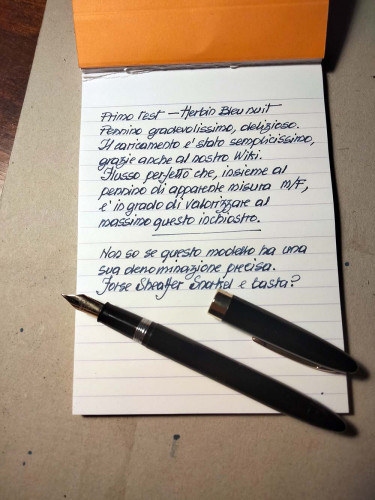 Primo test — Herbin Bleu nuit
Pennino gradevolissimo, delizioso.
Il caricamento e' stato semplicissimo,
grazie anche al nostro Wiki.
Flusso perfetto che, insieme al
pennino di apparente misura M/F,
e' in grado di valorizzare al
massimo questo inchiostro.
Non so se questo modello ha una
sua denominazione precisa.
Forse Sheaffer Snorkel e basta?